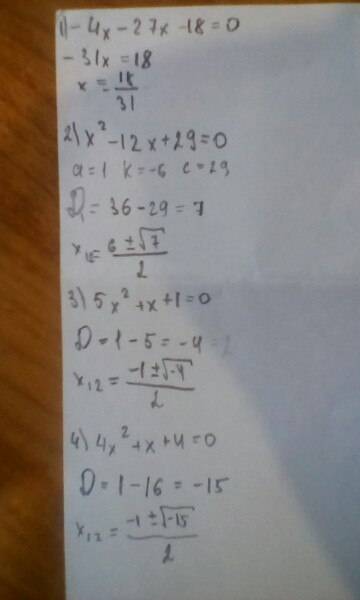 1) - 4x - 27x - 18 = 0
- 31x = 18
x = - 18/31
2) x² - 12x + 29 = 0
a = 1 k = -6 c = 29
D = 36 - 29 = 7
x₁₂ = (6 ± √7)/2
3) 5x² + x + 1 = 0
D = 1 - 5 = -4
x₁₂ = (-1 ± √-4)/2
4) 4x² + x + 4 = 0
D = 1 - 16 = -15
x₁₂ = (-1 ± √-15)/2